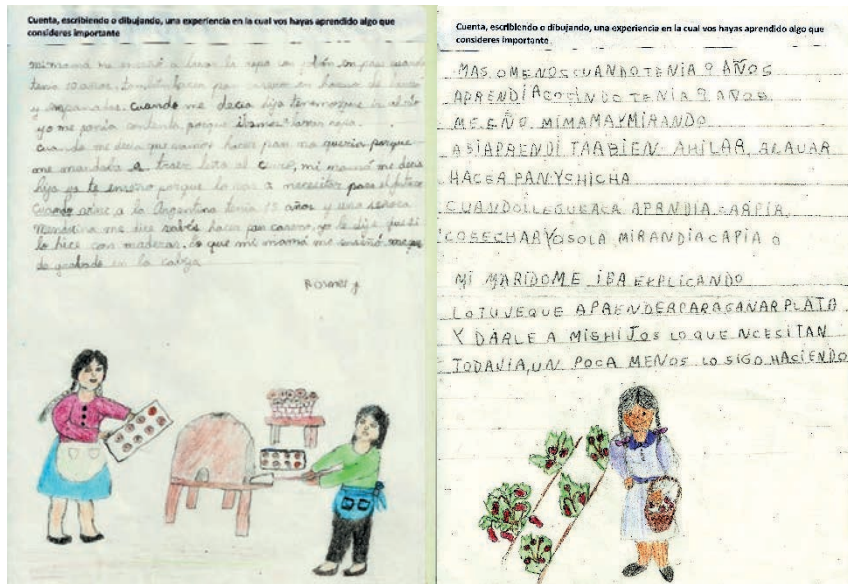 Cuenta, escribiendo o dibujando, una experiencia en la cual vos hayas aprendido algo que
consideres importante
mi mamá me enseñó a lavar la ropa con jabón, en pais cuando
tenia 10 años. también hacer pan casero en horno de barro
y empanadas. Cuando me decia hija tenemos que ir al rio
yo me ponia contenta, porque ibamos a lavar ropa.
Cuando me decia que vamos hacer pan no queria porque
me mandaba a traer leña al cerro, mi mamá me decia
hija yo te enseño porque lo vas a necesitar para el futuro
Cuando vine a la Argentina tenia 15 años y una señora
Mendocina me dice sabés hacer pan casero, yo le dije que si
lo hice con maderas. lo que mi mamá me enseñó
de grabado en la cabeza
Cuenta, escribiendo o dibujando, una experiencia en la cual vos hayas aprendido algo que
consideres importante
MAS OMENOS CUANDO TENIA 9 AÑOS
APRENDIA TENIA 9 AÑOS
MEEÑO MIMAMA Y MIRANDO
ASIAPRENDI TAABIEN AHILAR, ALAVAR
HACER PAN Y CHICHA
CUANDOLLEGUEACA APRNDIA CARPIR,
COSECHAR YO SOLA MIRANDIA
MI MARIDOME IBA EXPLICANDO
LOTUVEQUE APRENDERPARAGANAR PLATA
Y DARLE A MISHIJOS LO QUE NCESITAN
TODAVIA, UN POCA MENOS LO SIGO HACIENDO